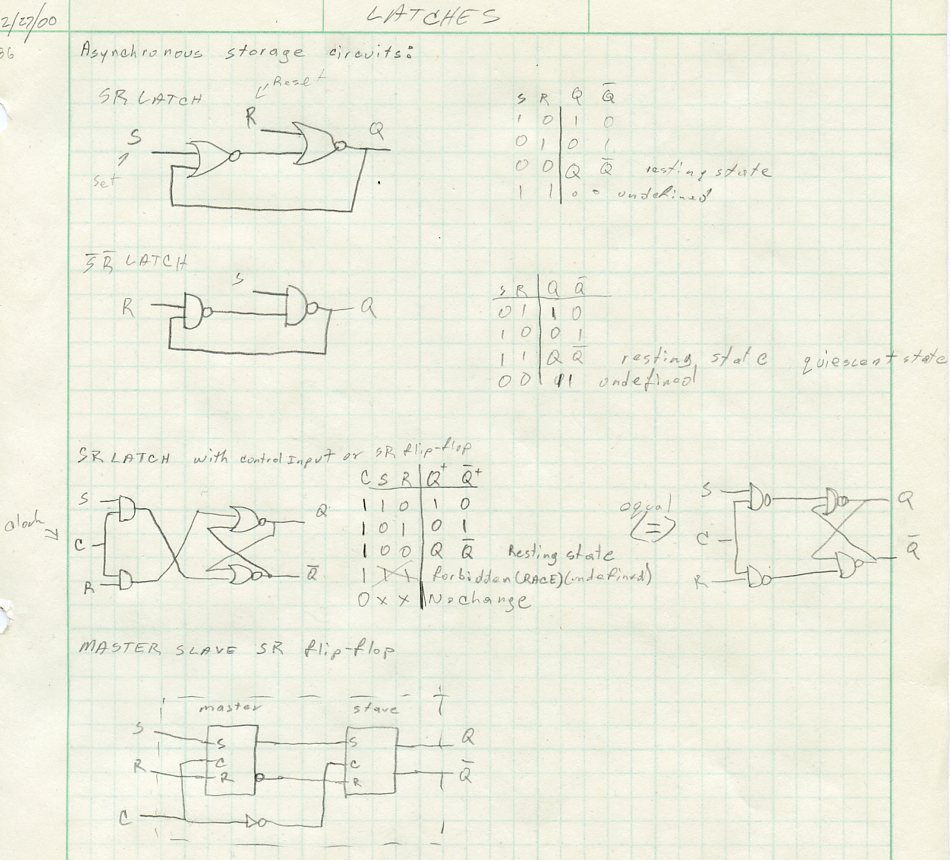 2/27/00
LATCHES
86
Asynchronous storage circuits:
SR LATCH
Reset
R
S
Q
Set
S R Q Q̅
1 0 1 0
0 1 0 1
0 0 Q Q̅ resting state
1 1 0 0 undefined
S̅R̅ LATCH
S
R
Q
S R Q Q̅
0 1 1 0
1 0 0 1
1 1 Q Q̅ resting state quiescent state
0 0 1 1 undefined
SR LATCH with control Input or SR flip-flop
S
Q
clock
C
R
Q̅
C S R Q⁺ Q̅⁺
1 1 0 1 0
1 0 1 0 1
1 0 0 Q Q̅ Resting state
1 1 1 forbidden (RACE) (undefined)
0 x x No change
equal
=
S
Q
C
Q̅
R
MASTER SLAVE SR flip-flop
master slave
S S S Q
C C
R R R Q̅
C